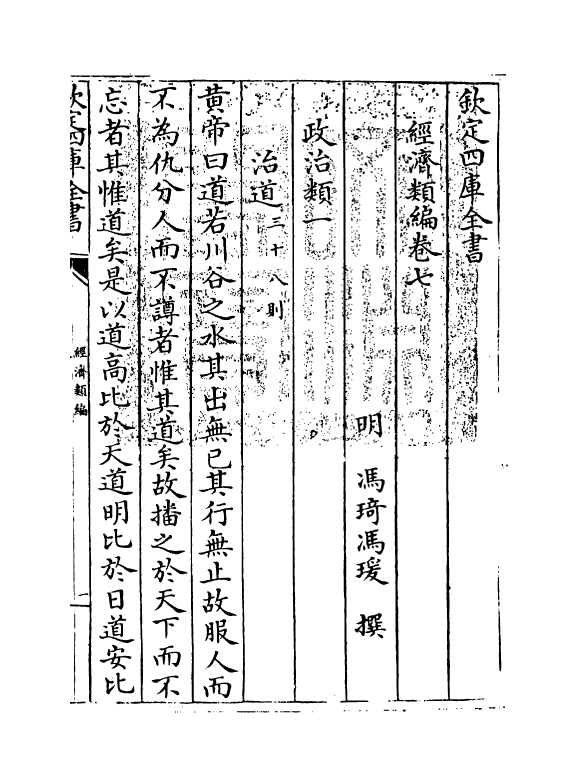 欽定四庫全書
經濟類編卷七
明 馮琦馮瑗 撰
政治類一
治道三十八則
黄帝曰道若川谷之水其出無已其行無止故服人而
不為仇分人而不譐者惟其道矣故播之於天下而不
忘者其惟道矣是以道高比於天道明比於日道安比
欽定四庫全書
經濟類編
一